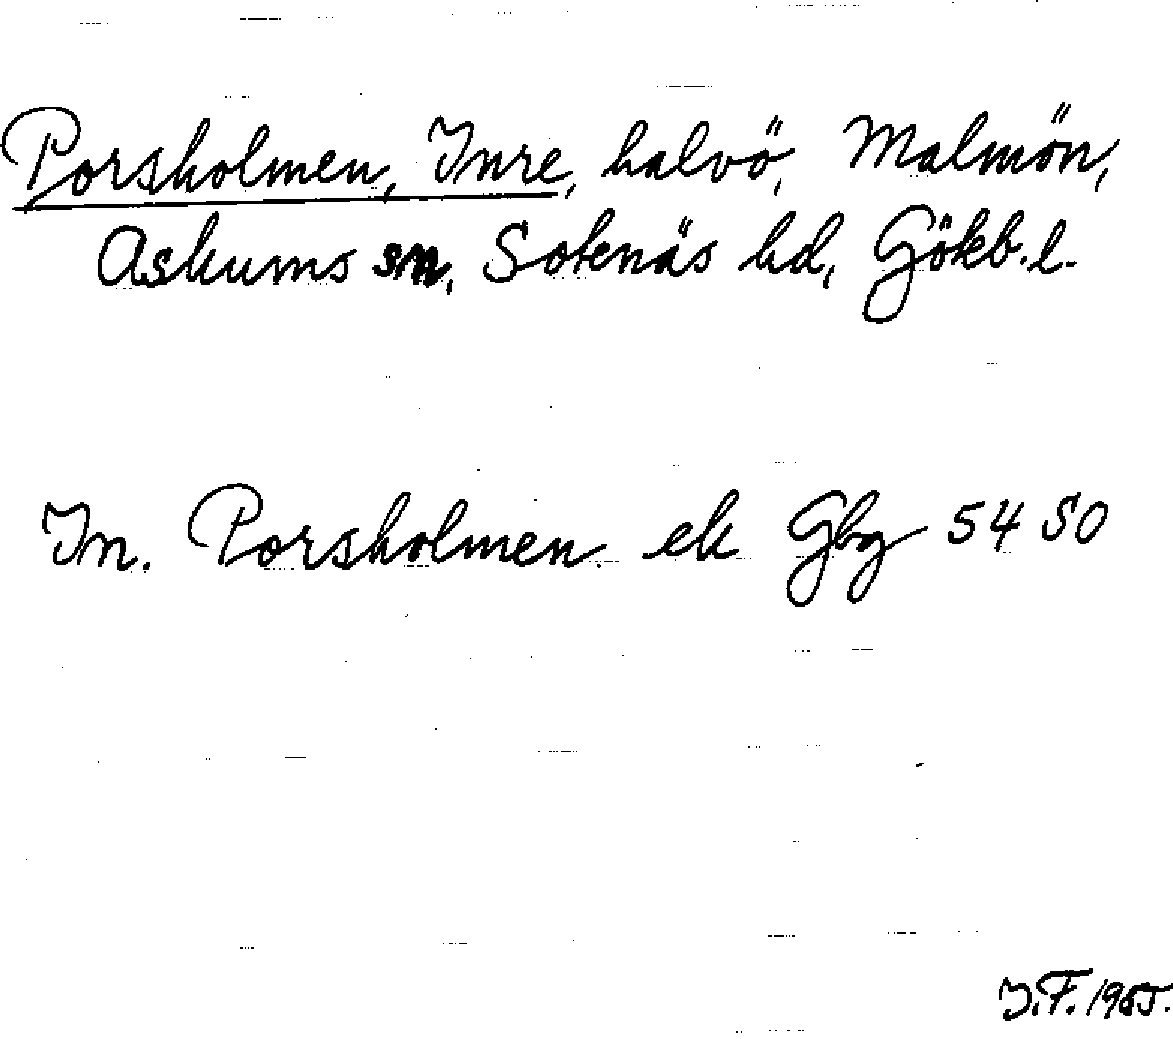 Porsholmen, Inre, halvö, Malmön,
Askums sn, Sotenäs hd, Gökb. l.
In. Porsholmen ek Gbg 54 SO
J.F. 1955.